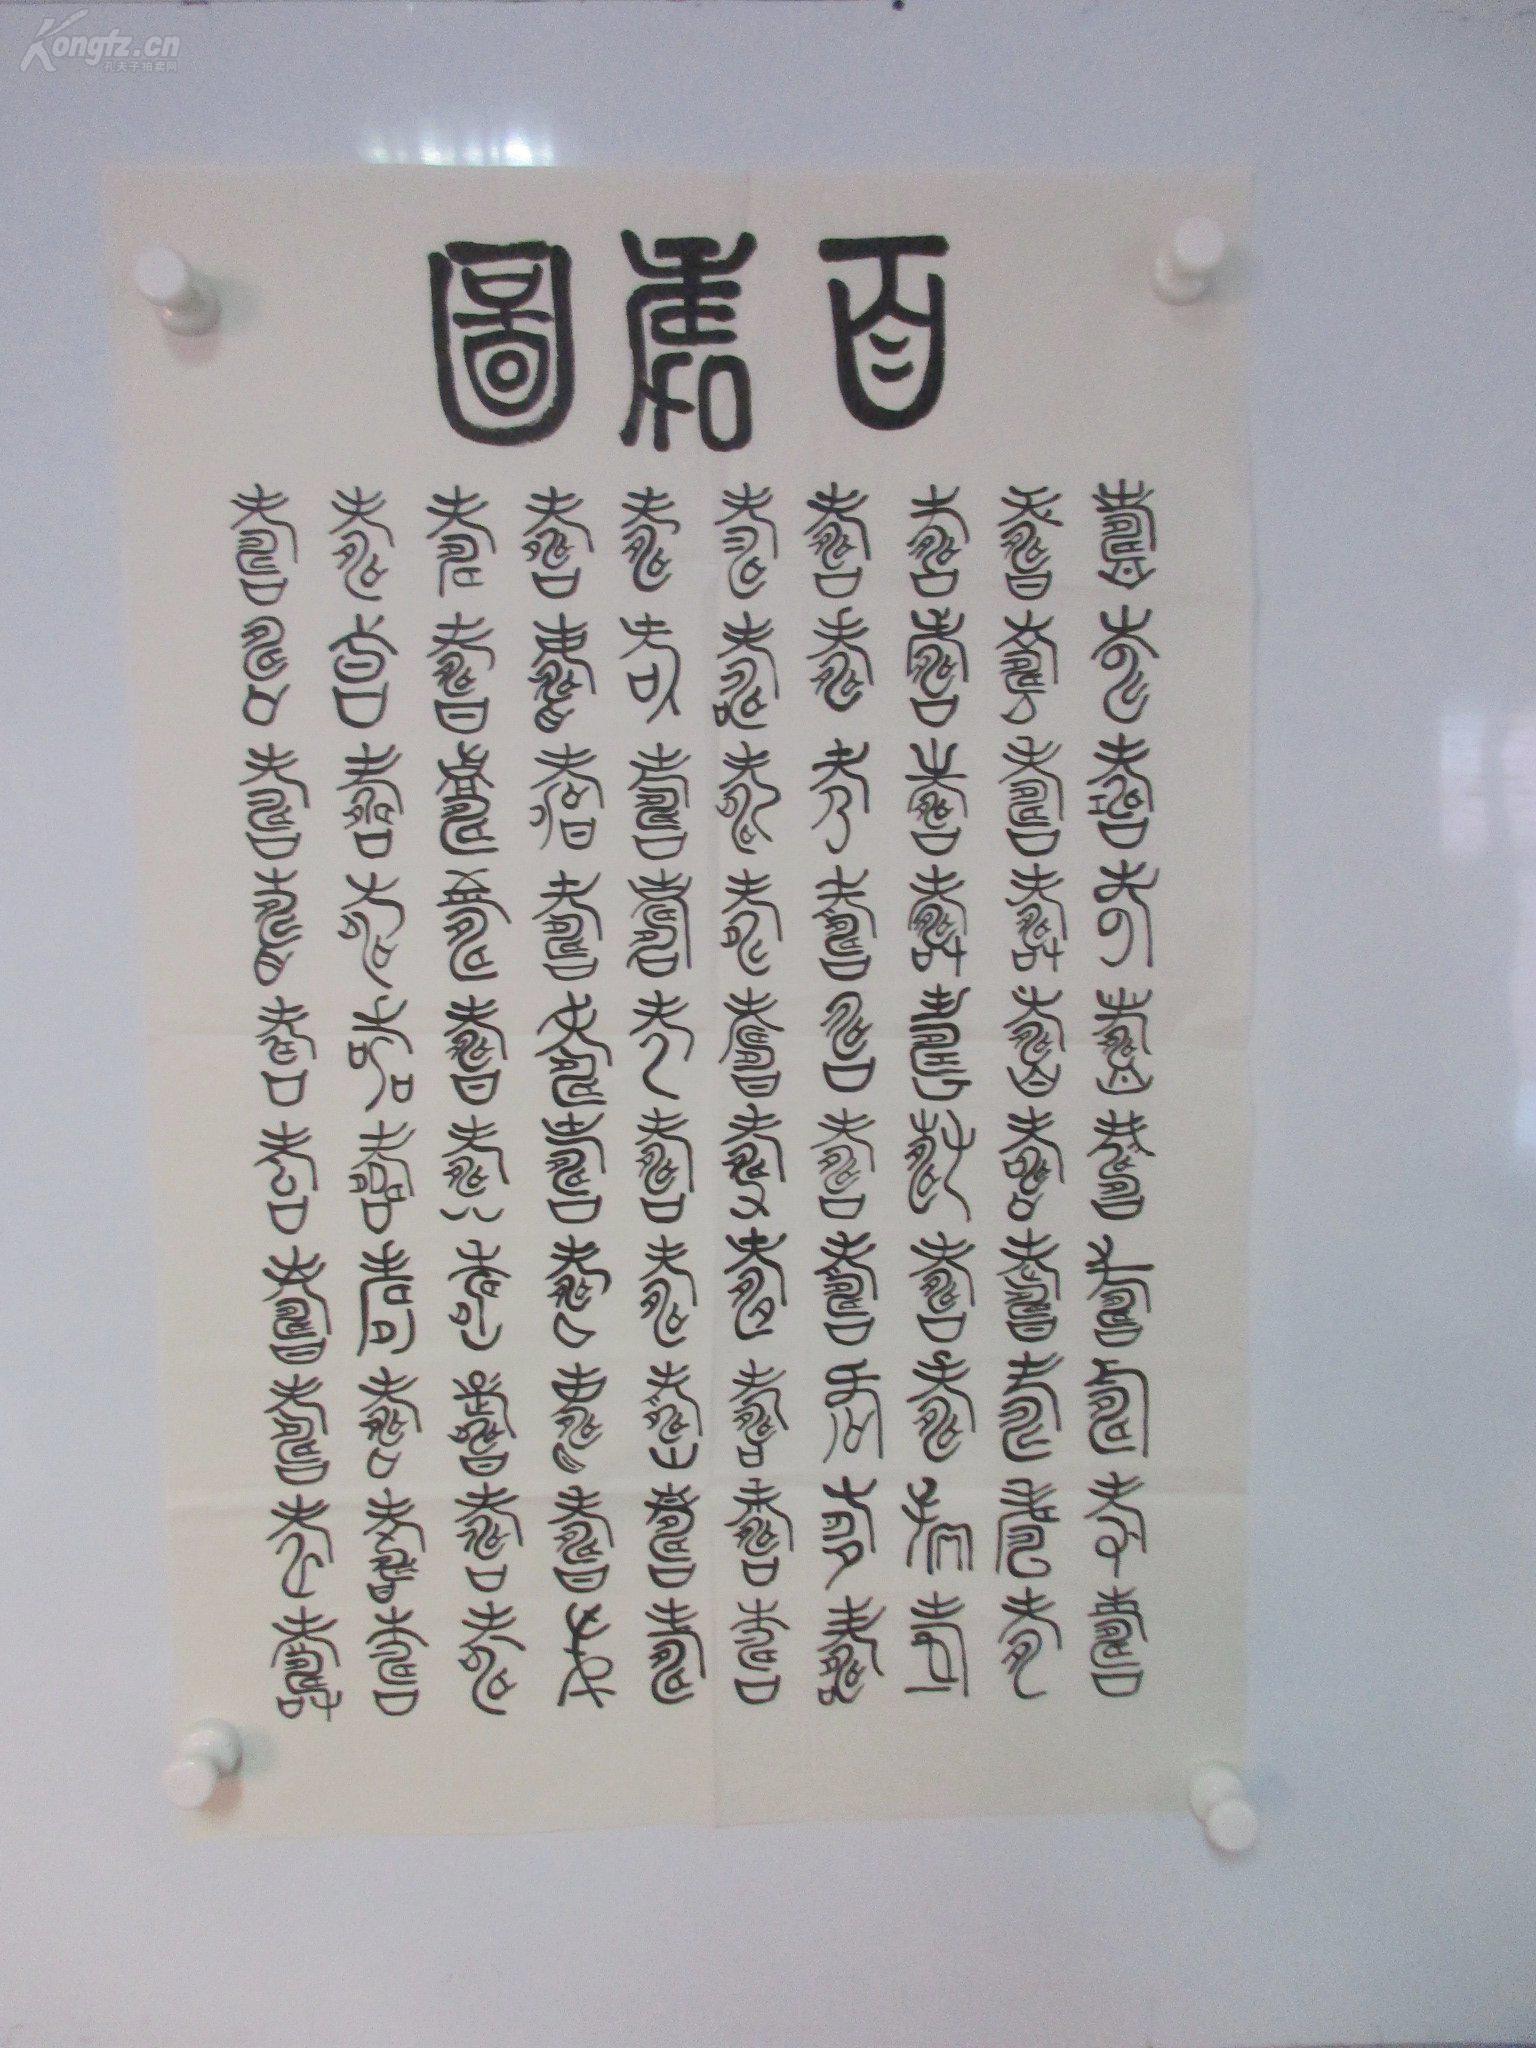 Kongfz.cn
孔夫子拍卖网
百壽圖
壽壽壽壽壽壽壽壽壽壽
壽壽壽壽壽壽壽壽壽壽
壽壽壽壽壽壽壽壽壽壽
壽壽壽壽壽壽壽壽壽壽
壽壽壽壽壽壽壽壽壽壽
壽壽壽壽壽壽壽壽壽壽
壽壽壽壽壽壽壽壽壽壽
壽壽壽壽壽壽壽壽壽壽
壽壽壽壽壽壽壽壽壽壽
壽壽壽壽壽壽壽壽壽壽